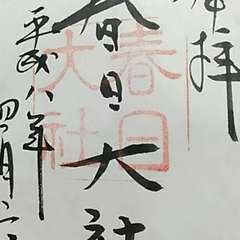 奉拝
春日大社
春日
大社
平成八年
四月二